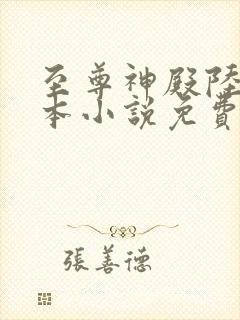 至尊神殿陸
本小說免費
張善德